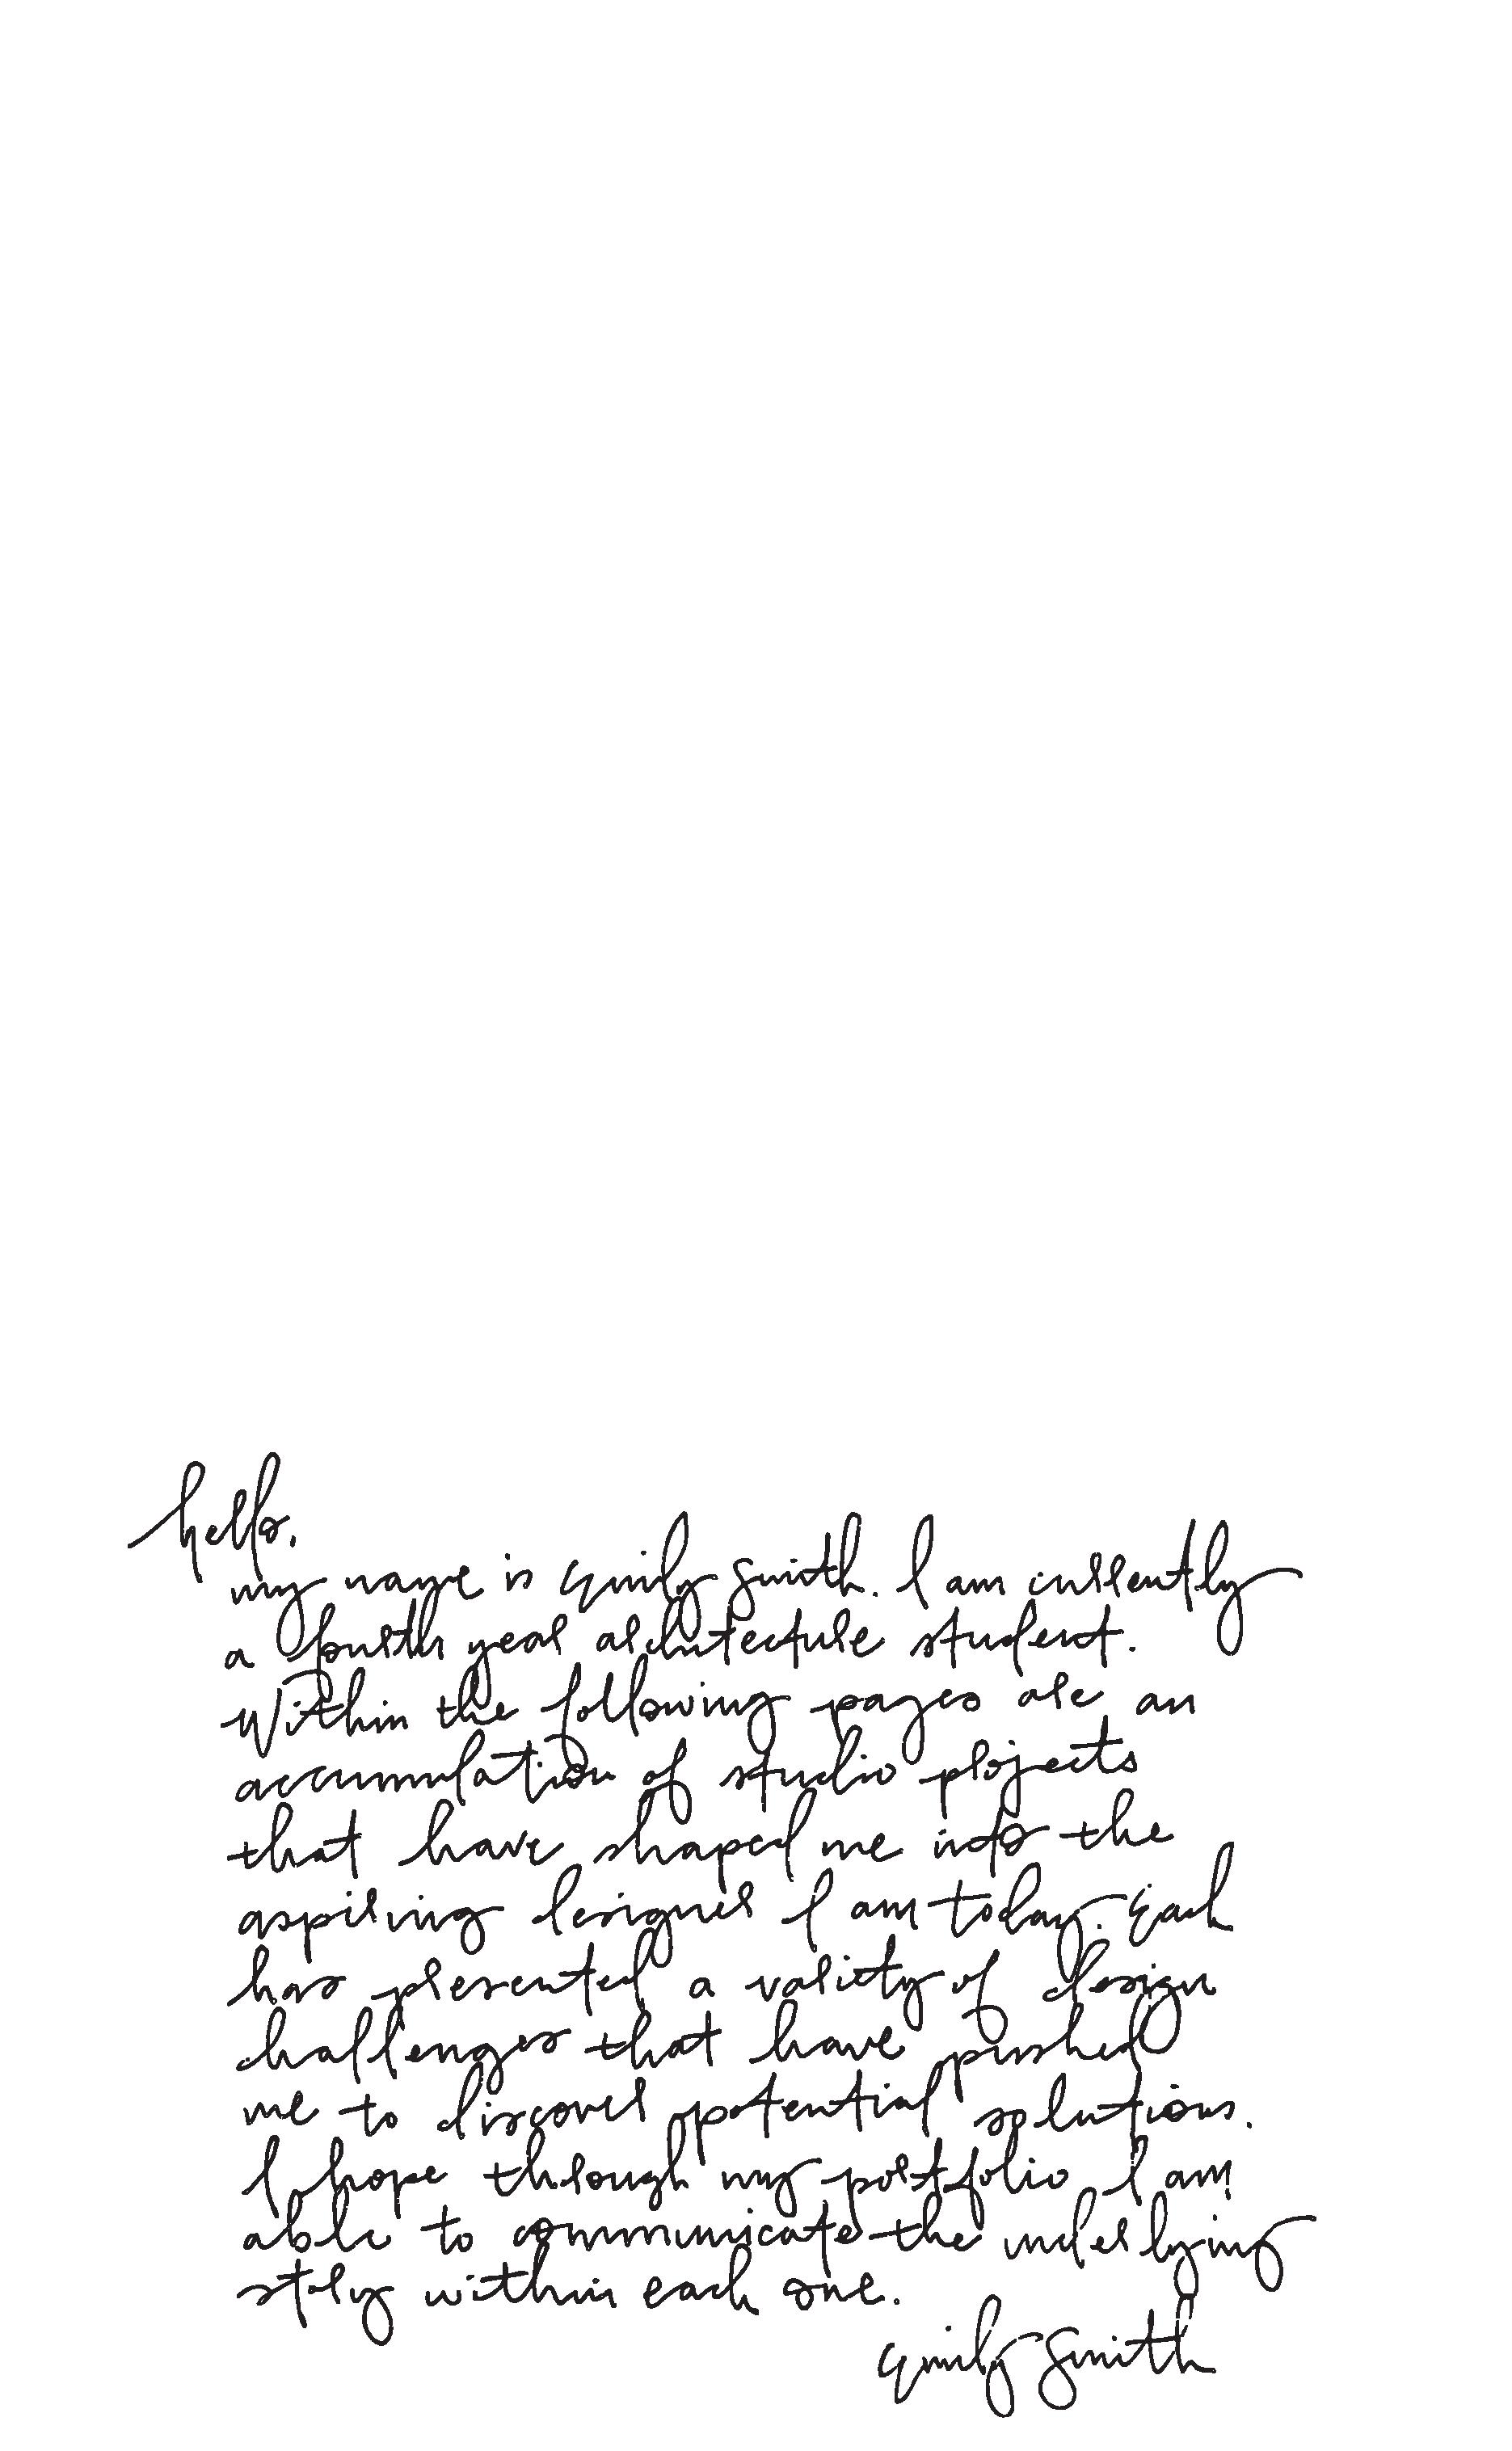 hello,
my name is emily smith. I am currently
a fourth year architecture student.
Within the following pages are an
accumulation of studio projects
that have shaped me into the
aspiring designer I am today. Each
has presented a variety of design
challenges that have pushed
me to discover potential solutions.
I hope through my portfolio I am
able to communicate the underlying
story within each one.
emily smith